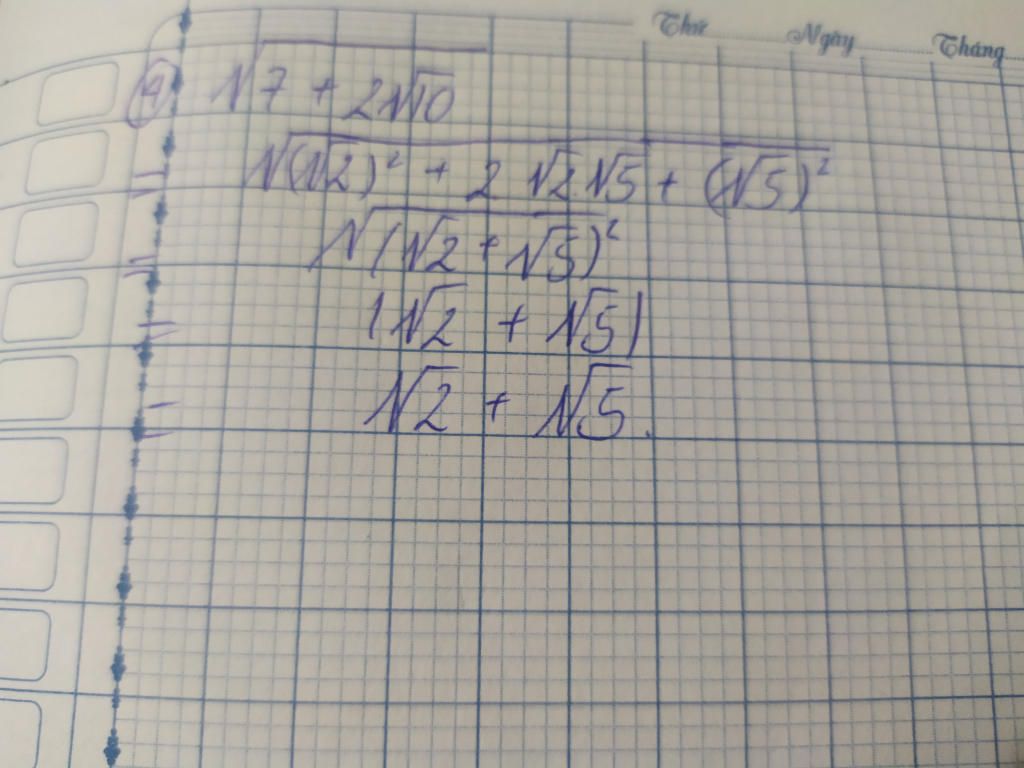 Thứ Ngày Tháng
√(7 + 2√10)
= √((√2)² + 2 √2 √5 + (√5)²)
= √((√2 + √5)²)
= |√2 + √5|
= √2 + √5.